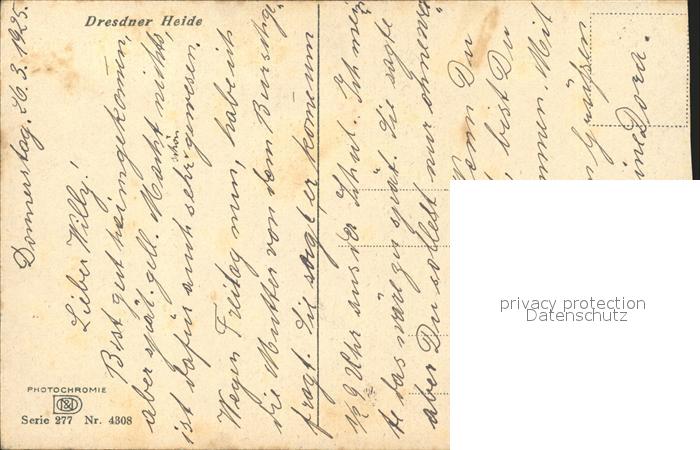 Dresdner Heide
Donnerstag, 26.3.1925.
Lieber Willy!
Bist gut heimgekommen,
aber spät, gell. Macht nichts,
ist dafür auch sehr schön gewesen.
Wegen Freitag nun, habe ich
die Mutter von dem Burschi ge-
fragt. Sie sagt, er komme um
1/2 9 Uhr aus der Schul. Ich mein
te das wäre zu spät. Sie sagte
aber Du sollest nur
Wenn Du
bist Du
Mit
Grüßen
Dora.
PHOTOCHROMIE
Serie 277 Nr. 4308
privacy protection
Datenschutz